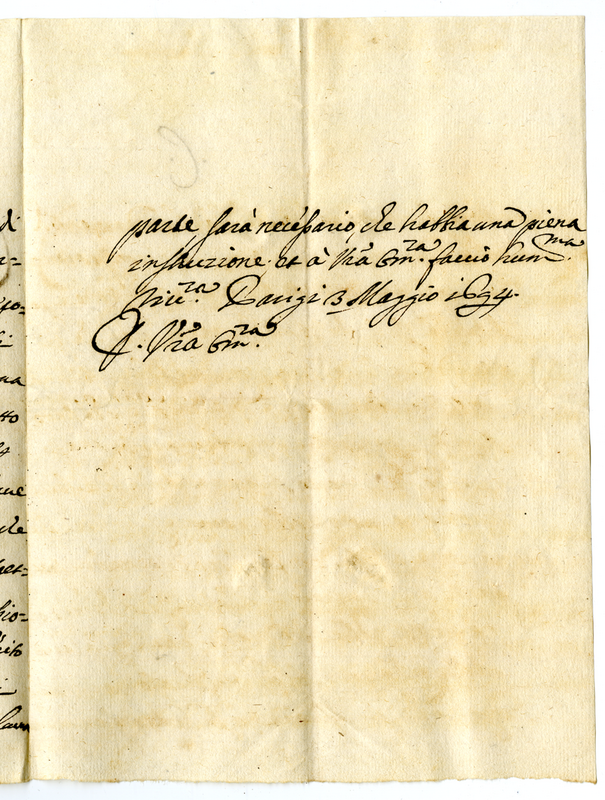 parte sarà necessario, che habbia una piena
instruzione. et à Vrã Em.za faccio hum.ma
riu.za Parigi 3 Maggio 1694.
Vrã Em.za
di
na
tto
che